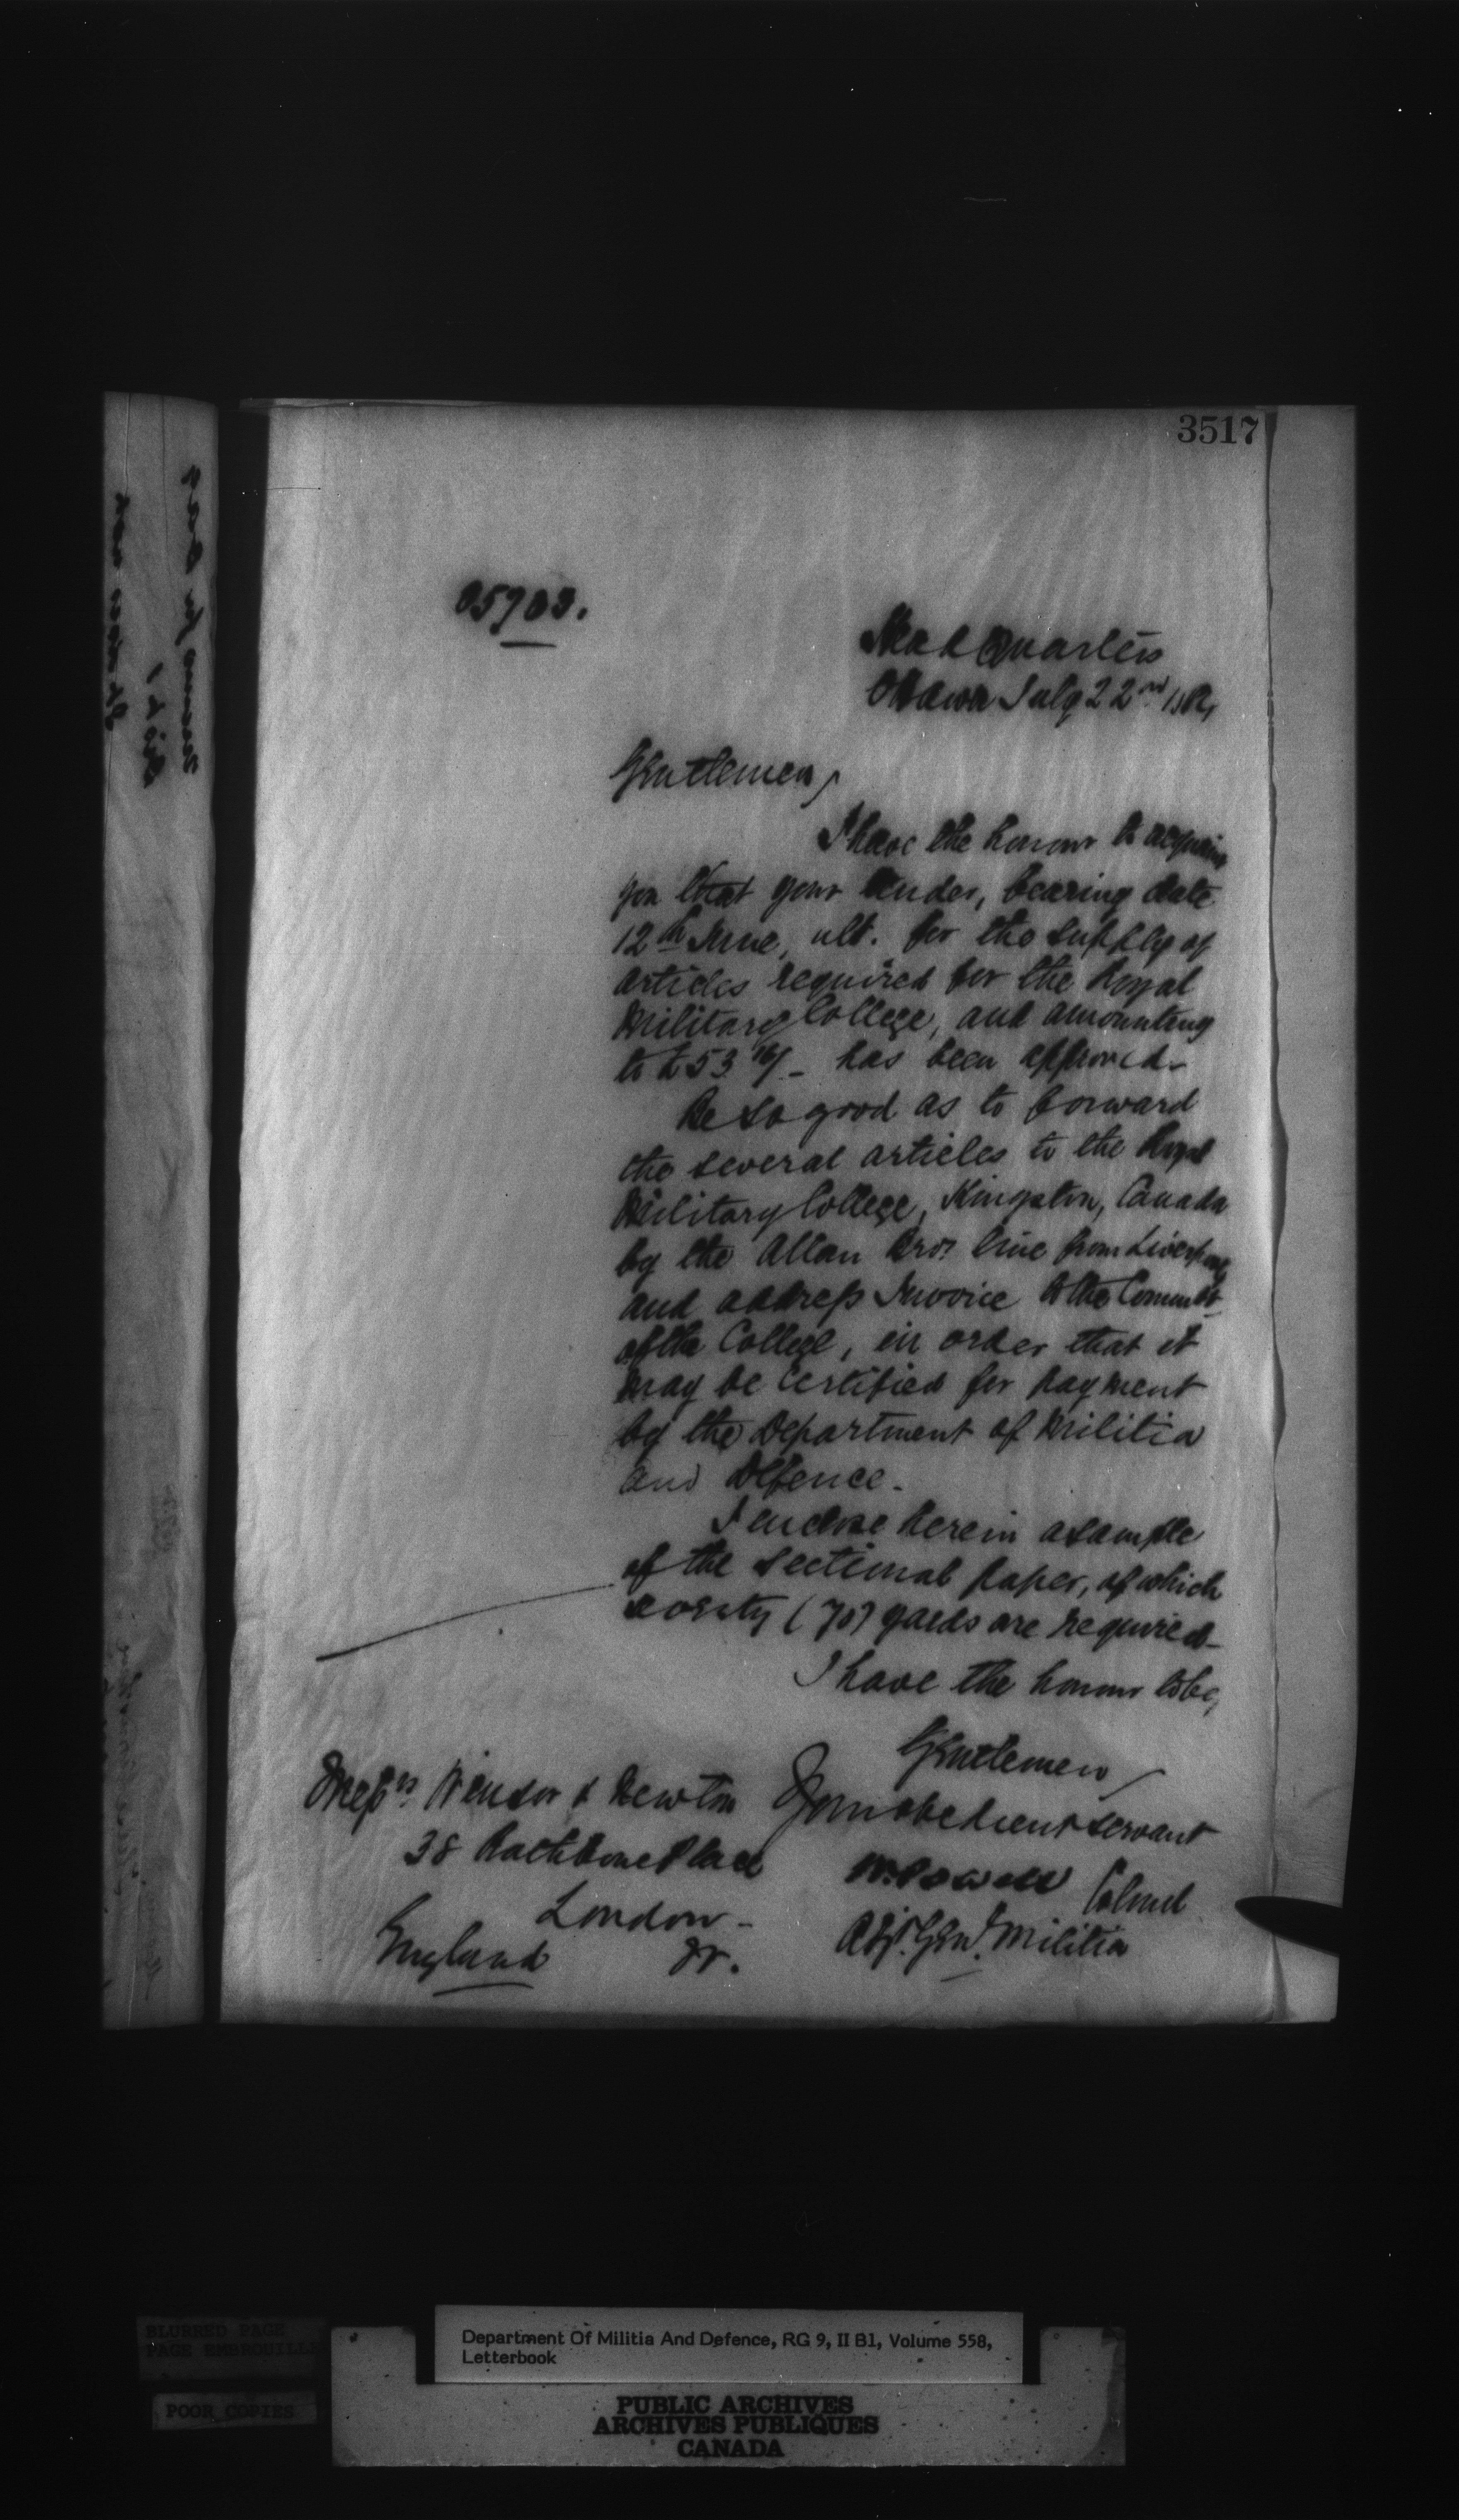 3517
05703.
Head Quarters
Ottawa July 22nd
Gentlemen,
I have the honour to acquaint
you that your tender, bearing date
12th June, ult. for the supply of
articles required for the Royal
Military College, and amounting
to £53.16/- has been approved-
Be so good as to forward
the several articles to the Royal
Military College, Kingston, Canada
by the Allan Bros. line from Liverpool
and address Invoice to the Commdt
of the College, in order that it
may be certified for payment
by the Department of Militia
and Defence.
I enclose herein a sample
of the sectional paper, of which
seventy (70) yards are required-
I have the honour to be,
Gentlemen
Your obedient servant
W. Powell Colonel
Adjt. Genl. Militia
Messrs Winsor & Newton
38 Rathbone Place
London-
England
BLURRED PAGE
PAGE EMBROUILLEE
POOR COPIES
Department Of Militia And Defence, RG 9, II B1, Volume 558,
Letterbook
PUBLIC ARCHIVES
ARCHIVES PUBLIQUES
CANADA